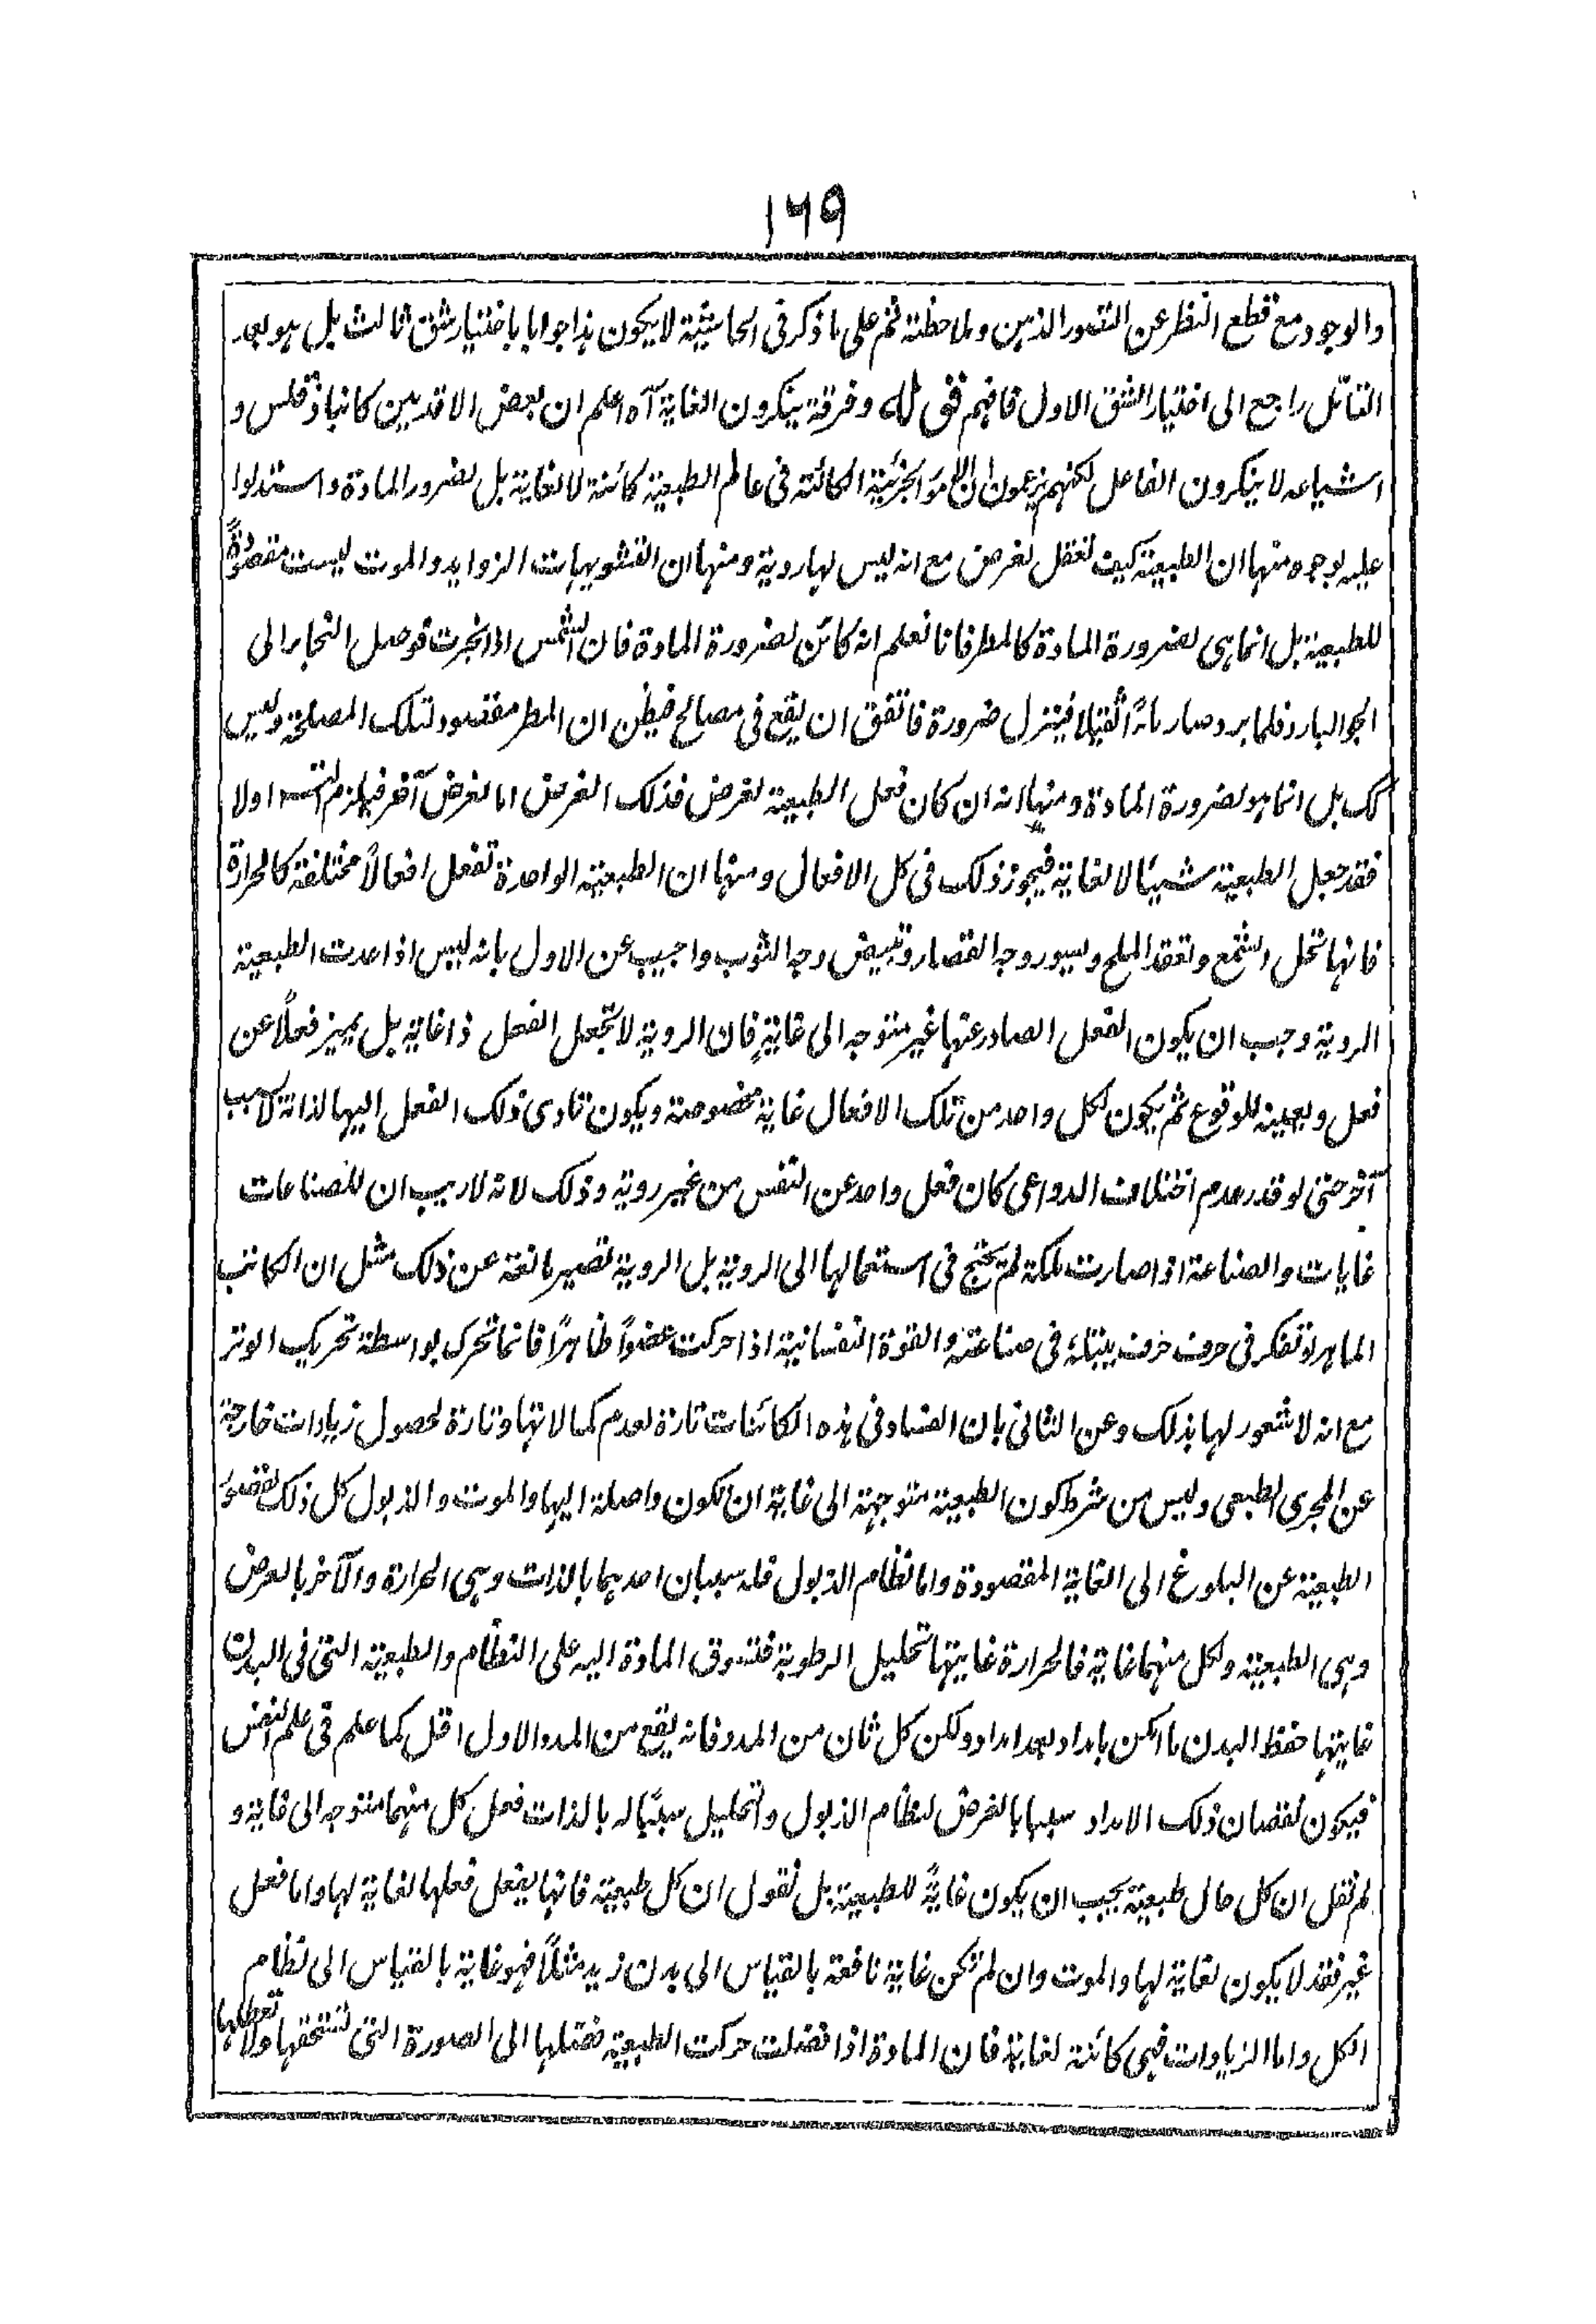 ١٦٩
والوجود مع قطع النظر عن التصور الذهن وملاحظته ثم على ما ذكر فى الحاشية لا يكون هذا جوابا باختيار شق ثالث بل هو بعد
التأمل راجع الى اختيار الشق الاول فافهم فق له وفرقة ينكرون الغاية آه اعلم ان بعض الاقدمين كانباذقلس و
اشياعه لا ينكرون الفاعل لكنهم يزعمون ان الامور الجزئية الكائنة فى عالم الطبيعة كائنة لا لغاية بل لضرور المادة واستدلوا
عليه بوجوه منها ان الطبيعة كيف تفعل لغرض مع انه ليس لها روية ومنها ان التشويهات الزوايد والموت ليست مقصودة
للطبيعة بل انما هى لضرورة المادة كالمطر فانا نعلم انه كائن لضرورة المادة فان الشمس اذا بخرت فوصل البخار الى
الجو البارد فلما برد وصار ماءً ثقيلا فينزل ضرورة فاتفق ان يقع فى مصالح فيظن ان المطر مقصود لتلك المصلحة وليس
كك بل انما هو لضرورة المادة ومنها انه ان كان فعل الطبيعة لغرض فذلك الغرض اما لغرض آخر فيلزم التسـ اولا
فقد جعل الطبيعة شيئا لا لغاية فيجوز ذلك فى كل الافعال ومنها ان الطبيعة الواحدة تفعل افعالاً مختلفة كالحرارة
فانها تحل الشمع وتعقد الملح وتسود وجه القصار وتبيض وجه الثوب واجيب عن الاول بانه ليس اذا عدت الطبيعة
الروية وجب ان يكون الفعل الصادر عنها غير متوجه الى غايةٍ فان الروية لا تجعل الفعل ذا غاية بل يميز فعلاً عن
فعل ويعينه للوقوع ثم يكون لكل واحد من تلك الافعال غاية مخصوصة ويكون تادى ذلك الفعل اليها لذاته لا لسبب
آخر حتى لو قدر عدم اختلاف الدواعى كان فعل واحد عن النفس من غير روية وذلك لانه لا ريب ان للصناعات
غايات والصناعة اذا صارت ملكة لم يحتج فى استعمالها الى الروية بل الروية تصير مانعة عن ذلك مثل ان الكاتب
الماهر لو تفكر فى حرف حرف يتبلد فى صناعته والقوة النفسانية اذا حركت عضواً ظاهراً فانما تحرك بواسطة تحريك الوتر
مع انه لا شعور لها بذلك وعن الثانى بان الفساد فى هذه الكائنات تارة لعدم كمالاتها وتارة لحصول زيادات خارجة
عن المجرى الطبعى وليس من شرط كون الطبيعة متوجهة الى غاية ان تكون واصلة اليها والموت والذبول كل ذلك لقصور
الطبيعة عن البلوغ الى الغاية المقصودة واما نظام الذبول فله سببان احدهما بالذات وهى الحرارة والآخر بالعرض
وهى الطبيعة ولكل منهما غاية فالحرارة غايتها تحليل الرطوبة فتسوق المادة اليه على النظام والطبيعة التى فى البدن
غايتها حفظ البدن ما امكن بامداد بعد امداد ولكن كل ثان من المدد فانه يقع من المدد الاول اقل كما علم فى علم النفس
فيكون نقصان ذلك الامداد سببا بالعرض لنظام الذبول والتحليل سببًا له بالذات فعل كل منهما متوجه الى غاية و
لم نقل ان كل حال طبيعة يجب ان يكون غايةً للطبيعة بل نقول ان كل طبيعة فانها يفعل فعلها لغاية لها واما فعل
غير فقد لا يكون لغاية لها والموت وان لم تكن غاية نافعة بالقياس الى بدن زيد مثلاً فهو غاية بالقياس الى نظام
الكل واما الزيادات فهى كائنة لغاية فان المادة اذا فضلت حركت الطبيعة فضلها الى الصورة التى تستحقها ولا تعطلها